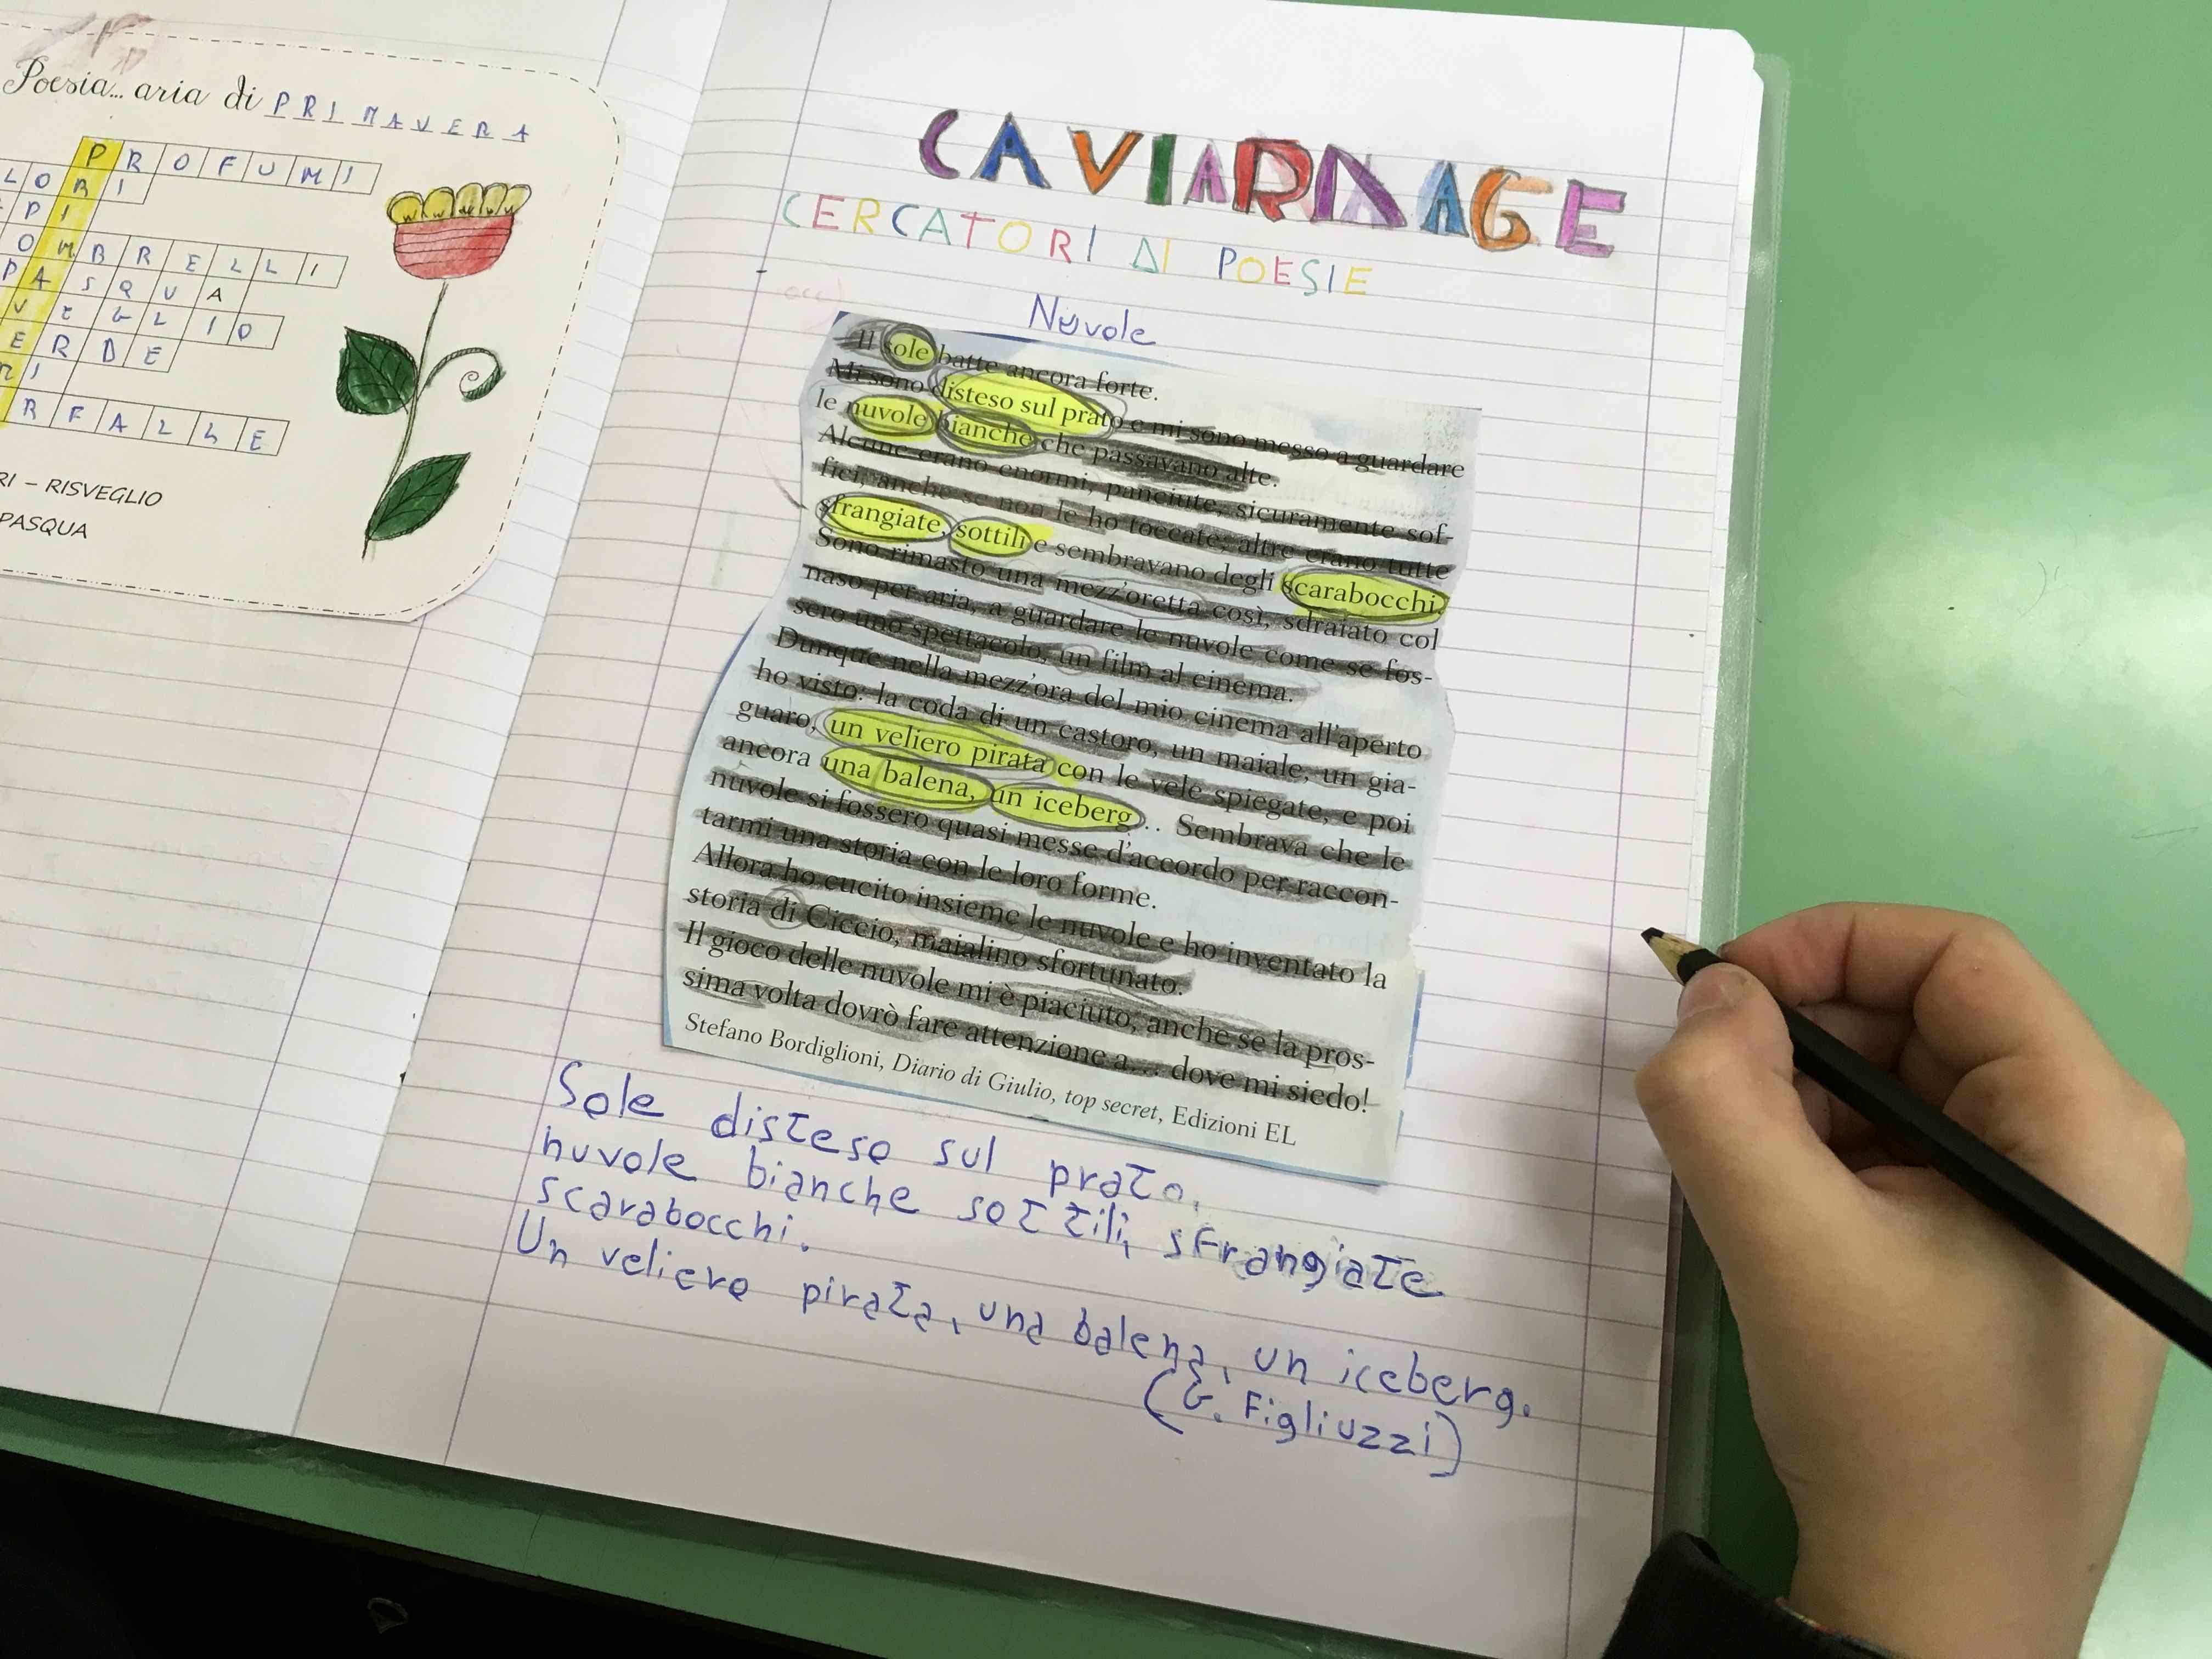 Poesia... aria di PRIMAVERA
PROFUMI
LORI
PI
OMBRELLI
PASQUA
VEGLIO
ERDE
RI
RFALLE
RI - RISVEGLIO
PASQUA
CAVIARDAGE
CERCATORI DI POESIE
Nuvole
Il sole batte ancora forte.
Mi sono disteso sul prato e mi sono messo a guardare
le nuvole bianche che passavano alte.
Alcune erano enormi, panciute, sicuramente sof-
fici, anche se non le ho toccate; altre erano tutte
sfrangiate, sottili e sembravano degli scarabocchi.
Sono rimasto una mezz'oretta così, sdraiato col
naso per aria, a guardare le nuvole come se fos-
sero uno spettacolo, un film al cinema.
Dunque nella mezz'ora del mio cinema all'aperto
ho visto: la coda di un castoro, un maiale, un gia-
guaro, un veliero pirata con le vele spiegate, e poi
ancora una balena, un iceberg... Sembrava che le
nuvole si fossero quasi messe d'accordo per raccon-
tarmi una storia con le loro forme.
Allora ho cucito insieme le nuvole e ho inventato la
storia di Ciccio, maialino sfortunato.
Il gioco delle nuvole mi è piaciuto, anche se la pros-
sima volta dovrò fare attenzione a... dove mi siedo!
Stefano Bordiglioni, Diario di Giulio, top secret, Edizioni EL
Sole disteso sul prato,
nuvole bianche sottili, sfrangiate
scarabocchi.
Un veliero pirata, una balena, un iceberg.
(G. Figliuzzi)